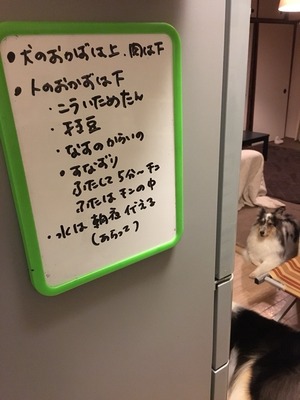 ・犬のおかずは上、肉は下
・人のおかずは下
・こういためたん
・枝豆
・なすのからいの
・すなずり
ふたして5分〜チン
ふたはチンの中
・水は朝夜代える
(あらって)